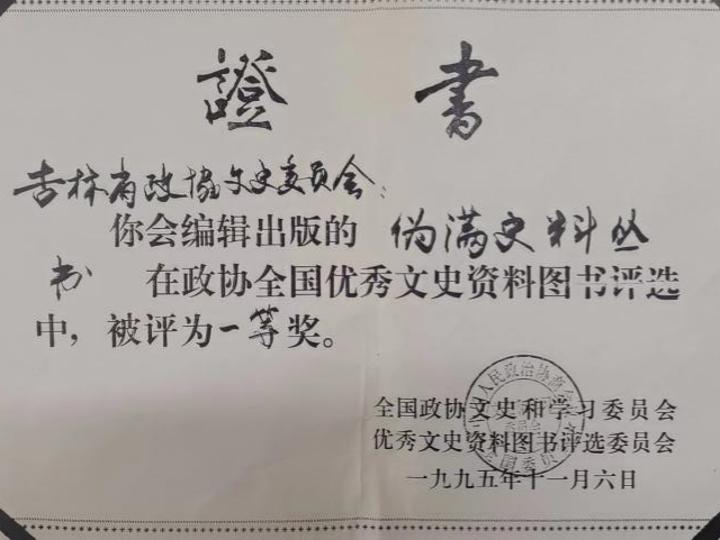 證書
吉林省政协文史委员会：
你会编辑出版的 伪满史料丛
书 在政协全国优秀文史资料图书评选
中，被评为一等奖。
全国政协文史和学习委员会
优秀文史资料图书评选委员会
一九九五年十一月六日